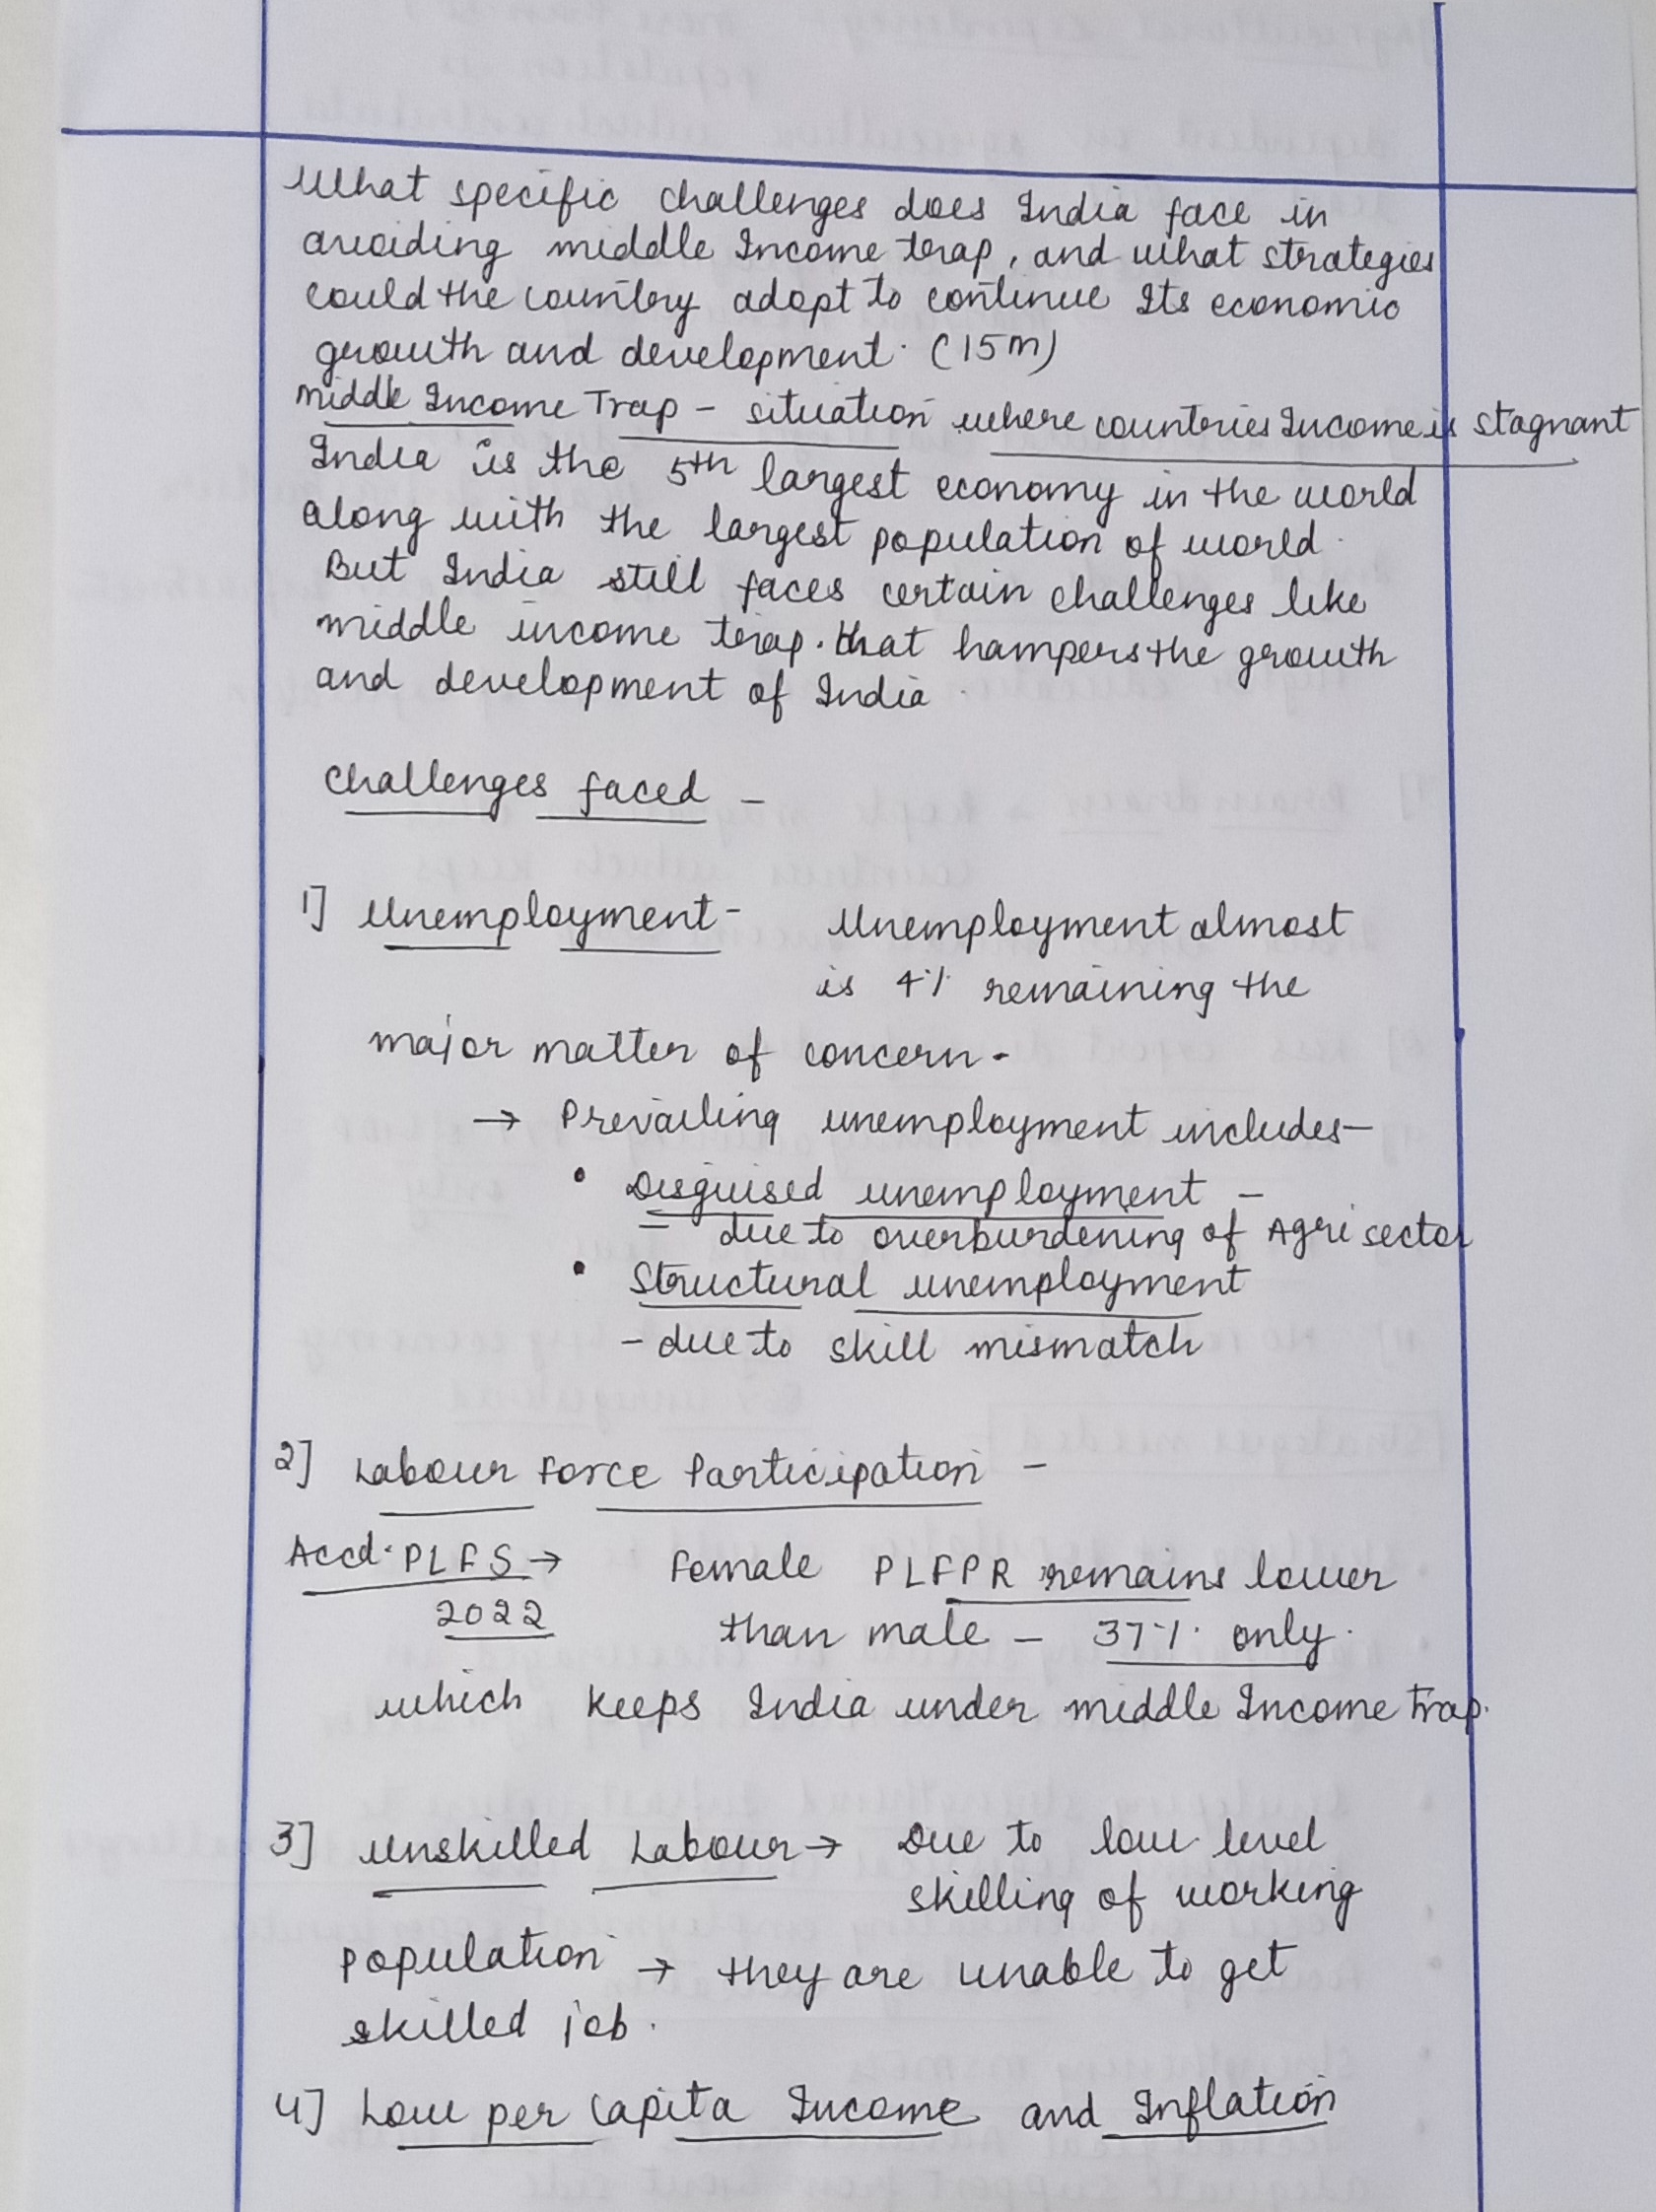 What specific challenges does India face in
avoiding middle Income trap, and what strategies
could the country adopt to continue Its economic
growth and development. (15m)
Middle Income Trap - situation where countries Income is stagnant
India is the 5th largest economy in the world
along with the largest population of world.
But India still faces certain challenges like
middle income trap. that hampers the growth
and development of India.
Challenges faced -
1] Unemployment - Unemployment almost
is 4% remaining the
major matter of concern.
→ Prevailing unemployment includes-
• Disguised unemployment -
- due to overburdening of Agri sector
• Structural unemployment
- due to skill mismatch
2] Labour Force Participation -
Accd. PLFS → Female PLFPR remains lower
2022 than male - 37% only.
which keeps India under middle Income Trap.
3] Unskilled Labour → Due to low level
skilling of working
population → they are unable to get
skilled job.
4] Low per capita Income and Inflation